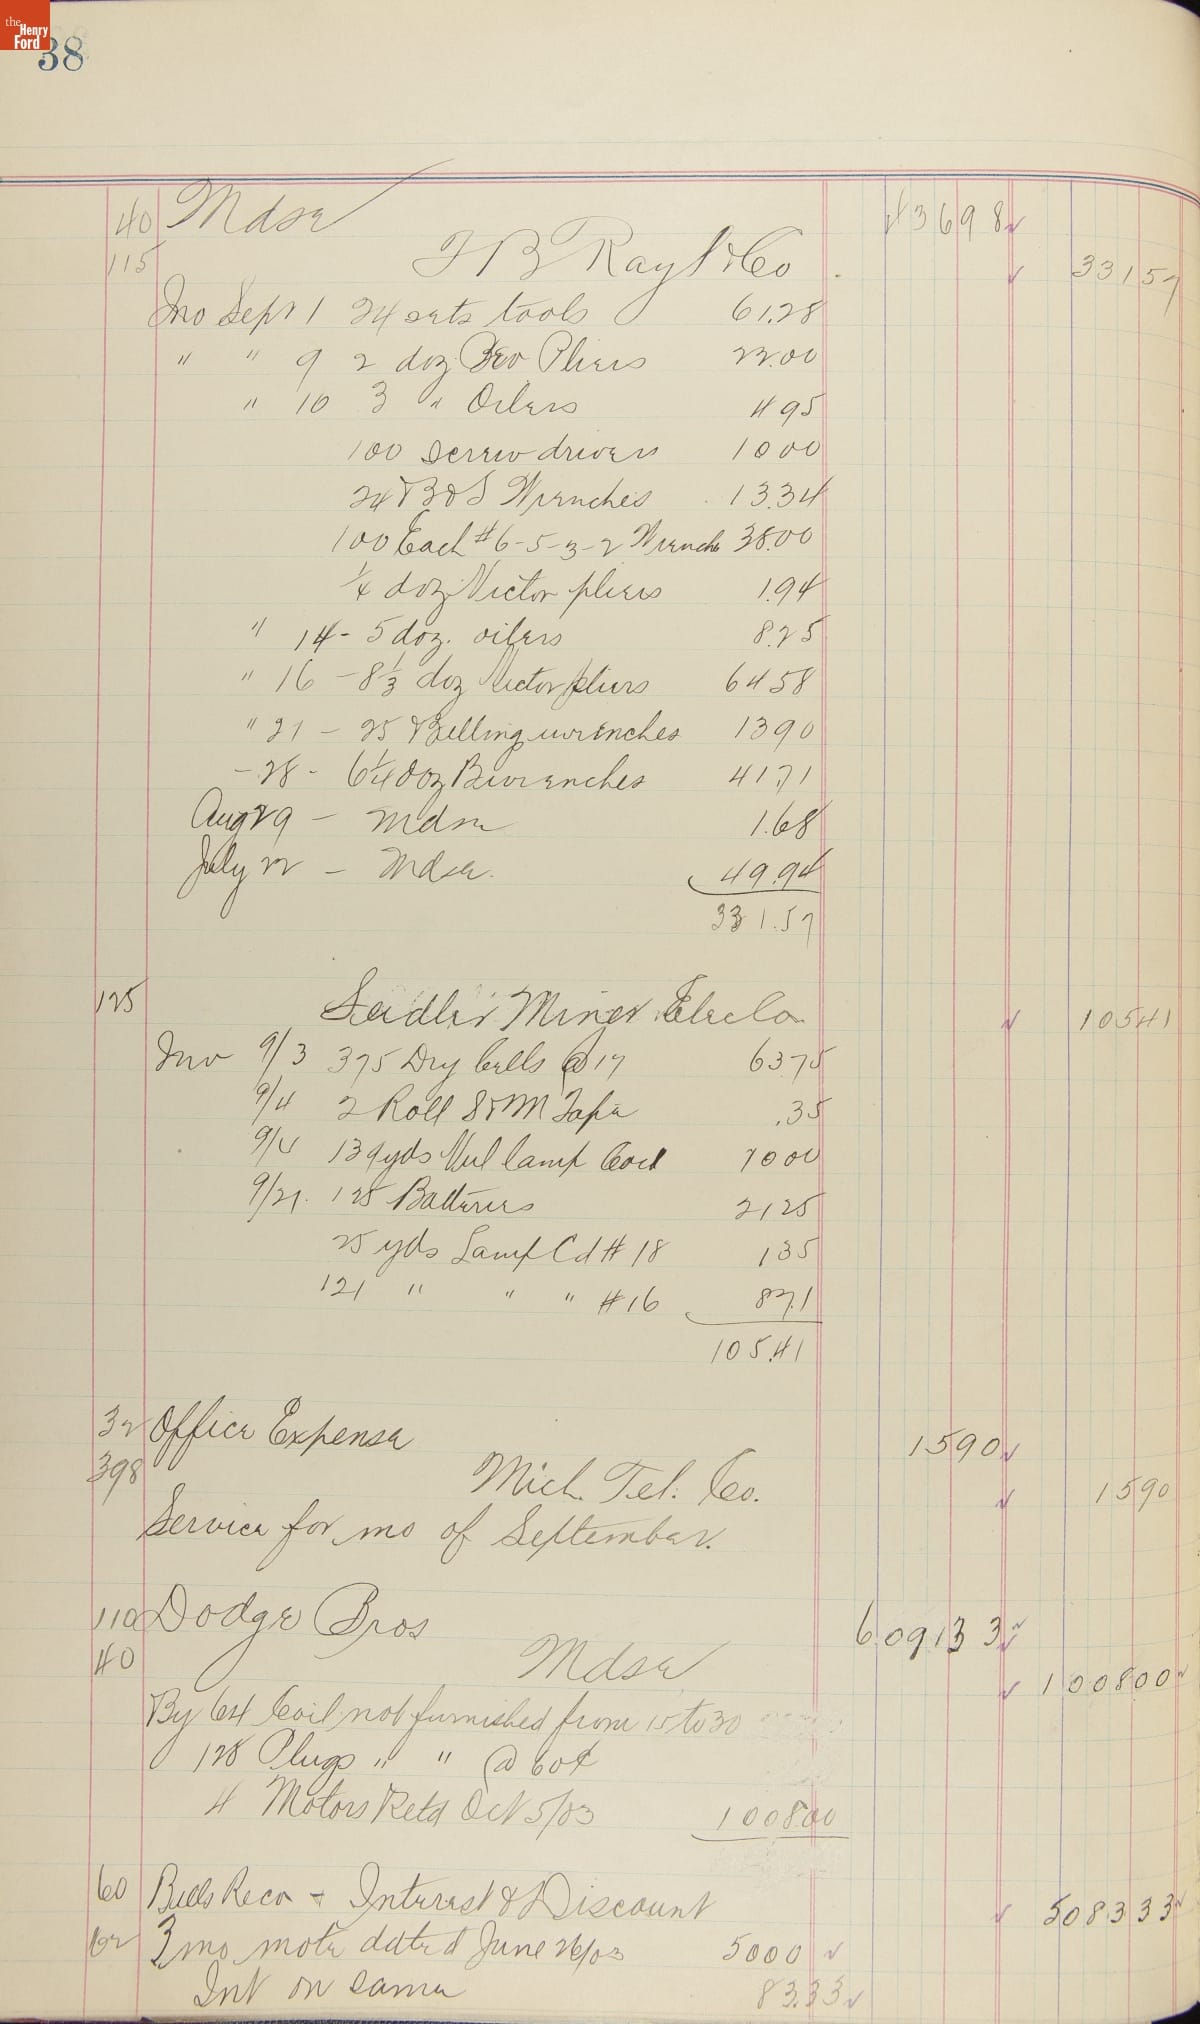 the Henry Ford
38
40 Mdse 43698
115 T B Rayl & Co 33157
Inv Sept 1 24 sets tools 61.28
" " 9 2 doz Pliers 22.00
" 10 3 " Oilers 4 95
100 Screw drivers 10 00
24 B & S Wrenches 13.34
100 Each #6-5-3-2 Wrench 38.00
1/4 doz Victor pliers 1.94
" 14 - 5 doz. oilers 8.25
" 16 - 8 1/3 doz Victor pliers 64 58
" 21 - 25 Billing wrenches 13 90
- 28 - 6 1/4 doz B wrenches 41 71
Aug 29 - Mdse 1.68
July 22 - Mdse. 49.94
331.57
125 Seidler Miner Elec Co 10541
Inv 9/3 375 Dry Cells @ 17 63 75
9/4 2 Roll Tape .35
9/4 139 yds Lamp Cord 10 00
9/21. 125 Batteries 21 25
25 yds Lamp Cd # 18 1 35
121 " " " # 16 8 71
105.41
32 Office Expense 1590
398 Mich. Tel. Co. 1590
Service for mo of September.
110 Dodge Bros 609133
40 Mdse 100800
By 64 Coil not furnished from 15 to 30
128 Plugs " " @ 60¢
4 Motors Retd Oct 5/03 1008.00
60 Bills Rec & Interest & Discount 508333
62 3 mo note dated June 26/03 5000
Int on same 83.33